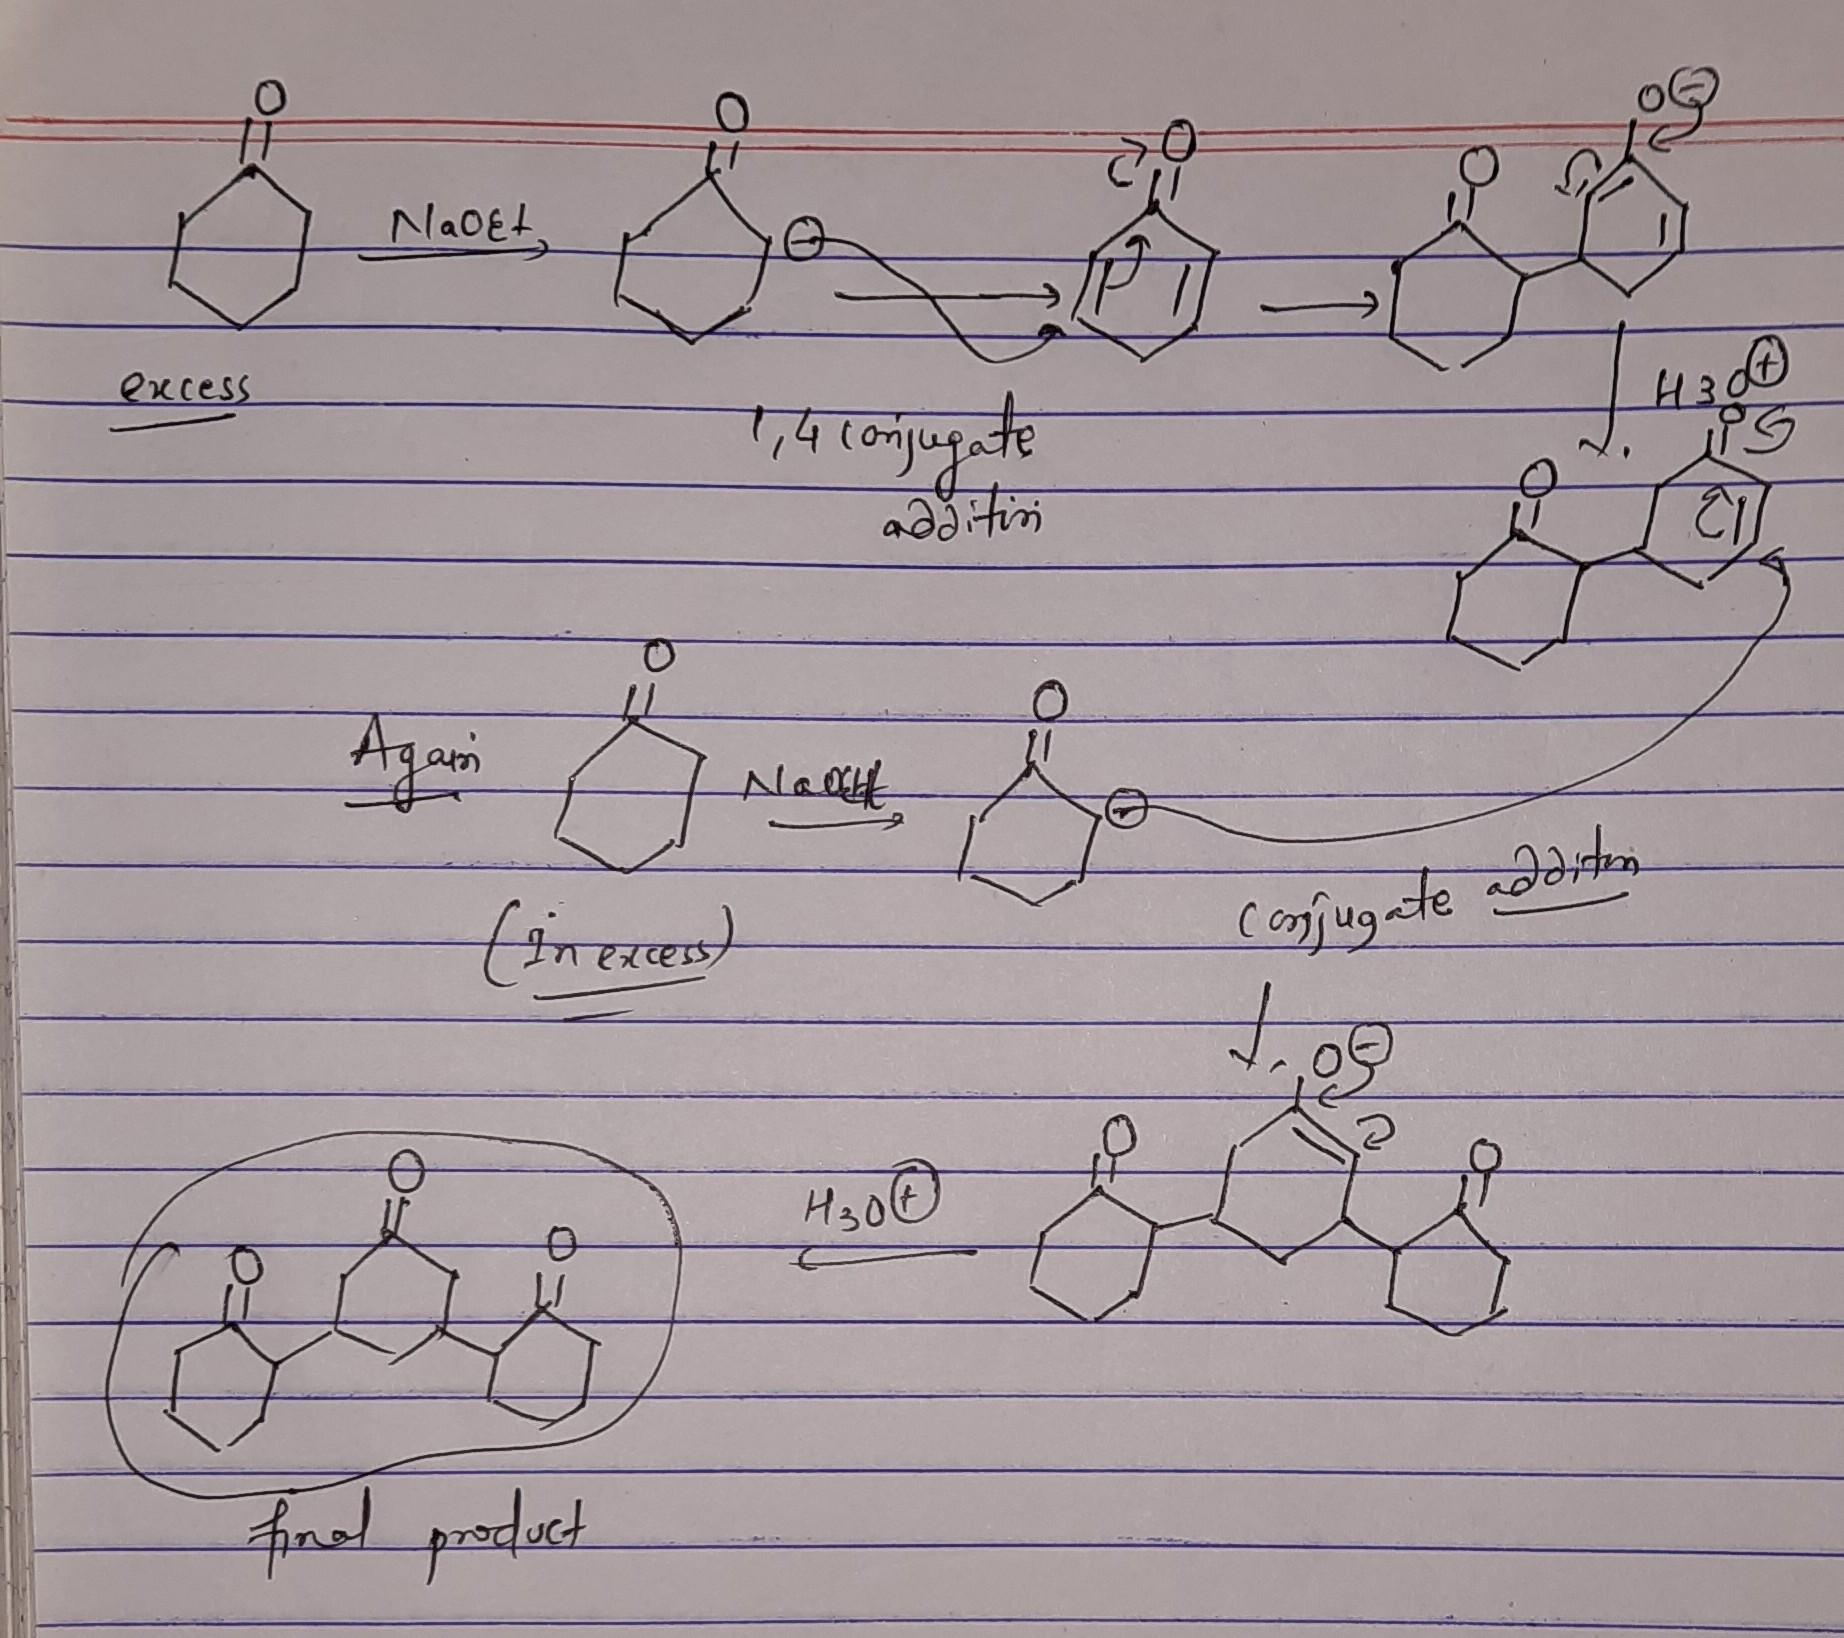 O
O
O
O
O⊖
NaOEt
⊖
excess
1,4 conjugate
addition
H3O⊕
O
O
Again
O
NaOEt
O
⊖
(In excess)
conjugate addition
O⊖
O
O
H3O⊕
O
O
O
final product